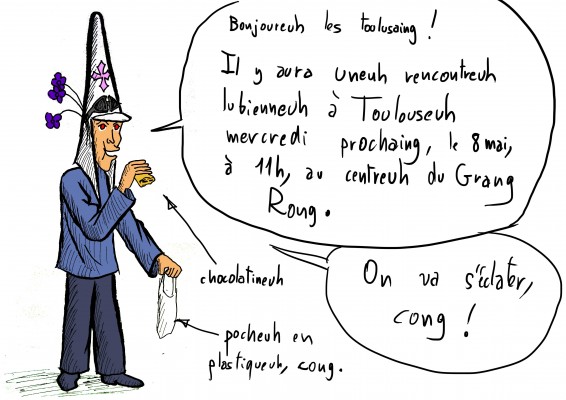 Bonjoureuh les toulusaing !
Il y aura uneuh rencontreuh
lubienneuh à Toulouseuh
mercredi prochaing, le 8 mai,
à 11h, au centreuh du Grang
Roug.
On va s'éclater,
cong !
chocolatineuh
pocheuh en
plastiqueuh, cong.